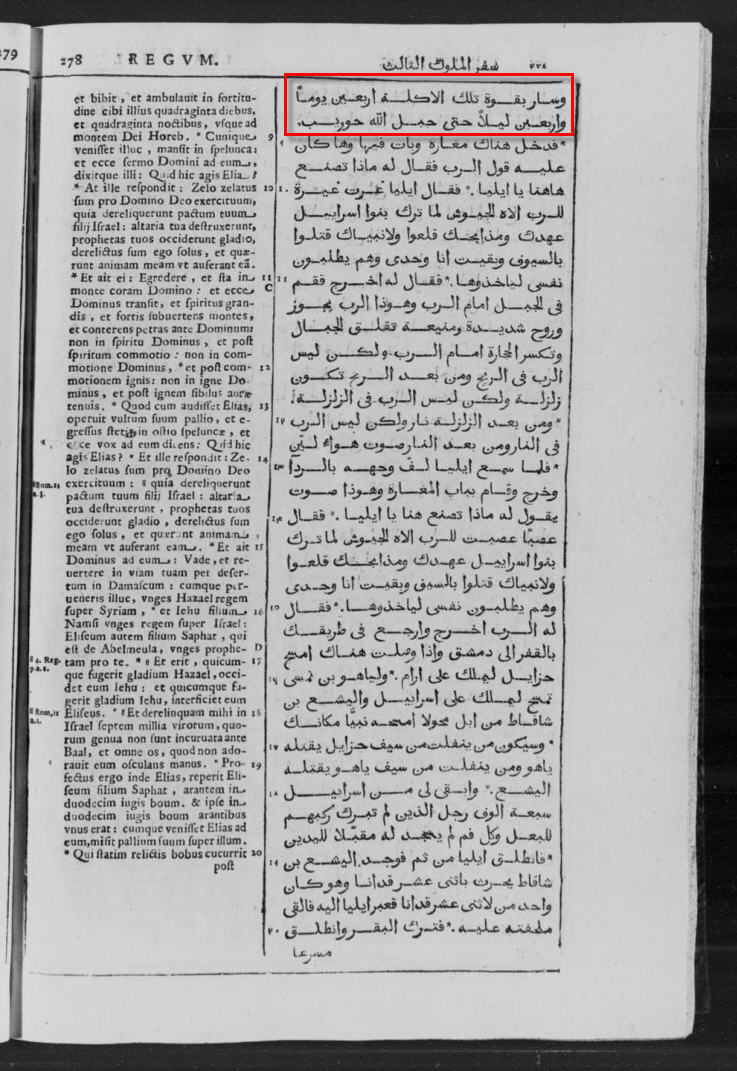 279
278 REGVM.
et bibit, et ambulauit in fortitu-
dine cibi illius quadraginta diebus,
et quadraginta noctibus, vsque ad
montem Dei Horeb. * Cumque 9
venisset illuc, mansit in spelunca:
et ecce sermo Domini ad eum,
dixitque illi: Quid hic agis Elia?
* At ille respondit: Zelo zelatus 10
sum pro Domino Deo exercituum,
quia dereliquerunt pactum tuum
filij Israel: altaria tua destruxerunt,
prophetas tuos occiderunt gladio,
derelictus sum ego solus, et quæ-
runt animam meam vt auferant eã.
* Et ait ei: Egredere, et sta in 11
monte coram Domino: et ecce C
Dominus transit, et spiritus gran-
dis, et fortis subuertens montes,
et conterens petras ante Dominum:
non in spiritu Dominus, et post
spiritum commotio: non in com-
motione Dominus, * et post com- 12
motionem ignis: non in igne Do-
minus, et post ignem sibilus auræ
tenuis. * Quod cum audisset Elias, 13
operuit vultum suum pallio, et e-
gressus stetit in ostio speluncæ, et
ecce vox ad eum dicens: Quid hic
agis Elias? * Et ille respondit: Ze- 14
lo zelatus sum pro Domino Deo
exercituum: quia dereliquerunt
pactum tuum filij Israel: altaria
tua destruxerunt, prophetas tuos
occiderunt gladio, derelictus sum
ego solus, et quærunt animam
meam vt auferant eam. * Et ait 15
Dominus ad eum: Vade, et re-
uertere in viam tuam per deser-
tum in Damascum: cumque per-
ueneris illuc, vnges Hazael regem
super Syriam, * et Iehu filium 16
Namsi vnges regem super Israel:
Eliseum autem filium Saphat, qui
est de Abelmeula, vnges prophe- D
tam pro te. * Et erit, quicum- 17
que fugerit gladium Hazael, occi-
det eum Iehu: et quicumque fu-
gerit gladium Iehu, interficiet eum
Eliseus. * Et derelinquam mihi in 18
Israel septem millia virorum, quo-
rum genua non sunt incuruata ante
Baal, et omne os, quod non ado-
rauit eum osculans manus. * Pro- 19
fectus ergo inde Elias, reperit Eli-
seum filium Saphat, arantem in
duodecim iugis boum. & ipse in
duodecim iugis boum arantibus
vnus erat: cumque venisset Elias ad
eum, misit pallium suum super illum.
* Qui statim relictis bobus cucurrit 20
post
Rom. 11
4. Reg.
9.a.2.
Rom, 11
سفر الملوك الثالث ٢٧٨
وسار بقوة تلك الاكلة اربعين يوماً
واربعين ليلاً حتى جبل الله حوريب.
*فدخل هناك مغارة وبات فيها وها كان
عليه قول الرب فقال له ماذا تصنع
هاهنا يا ايليا. * فقال ايليا غرت غيرة
للرب الاه الجيوش لما ترك بنوا اسراييل
عهدك ومذابحك قلعوا ولانبياك قتلوا
بالسيوف وبقيت انا وحدى وهم يطلبون
نفسى لياخذوها. *فقال له اخرج فقم
فى الجبل امام الرب وهوذا الرب يجوز
وروح شديدة ومنيعة تقلق الجبال
وتكسر الحجارة امام الرب ولكن ليس
الرب فى الريح ومن بعد الريح تكون
زلزلة ولكن ليس الرب فى الزلزلة.
*ومن بعد الزلزلة نار ولكن ليس الرب
فى النار ومن بعد النار صوت هواء ليّن
*فلما سمع ايليا لفّ وجهه بالردآ
وخرج وقام بباب المغارة وهوذا صوت
يقول له ماذا تصنع هنا يا ايليا. * فقال
عصبًا عصبت للرب الاه الجيوش لما ترك
بنوا اسراييل عهدك ومذابحك قلعوا
ولانبياك قتلوا بالسيف وبقيت انا وحدى
وهم يطلبون نفسى لياخذوها. *فقال
له الرب اخرج وارجع فى طريقك
بالقفر الى دمشق واذا وصلت هناك امسح
حزايل ليملك على ارام. *ولياهو بن نمسى
تمسح ليملك على اسراييل واليشع بن
شافاط من ابل محولا امسحه نبيًا مكانك
*وسيكون من ينفلت من سيف حزايل يقتله
ياهو ومن ينفلت من سيف ياهو يقتله
اليشع. * وابقى لى من اسراييل
سبعة الوف رجل الذين لم تبرك ركبهم
للبعل وكل فم لم يسجد له مقبّلا لليدين
*فانطلق ايليا من ثم فوجد اليشع بن
شافاط يحرث باثنى عشر فدانا وهو كان
واحد من لاثنى عشر فدانا فعبر ايليا اليه فالقى
ملحفته عليه. *فترك البقر وانطلق
مسرعا